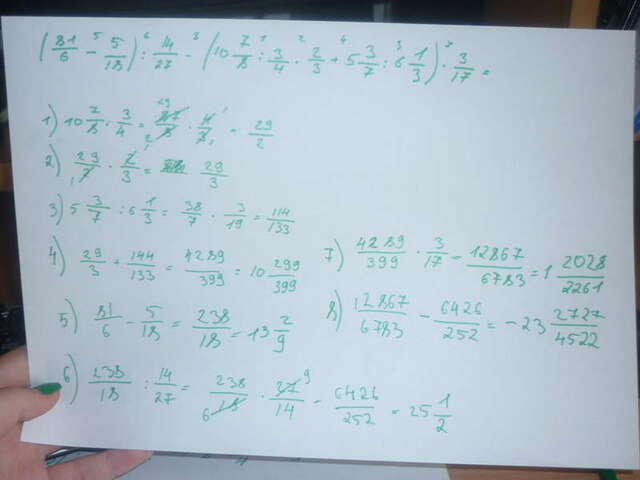 (81/6 - 5/18) : 14/27 - (10 7/8 : 3/4 · 2/3 + 5 3/7 : 6 1/3) · 3/17 =
1) 10 7/8 : 3/4 = 87/8 · 4/3 = 29/2
2) 29/2 · 2/3 = 29/3
3) 5 3/7 : 6 1/3 = 38/7 · 3/19 = 114/133
4) 29/3 + 144/133 = 4289/399 = 10 299/399
5) 81/6 - 5/18 = 238/18 = 13 2/9
6) 238/18 : 14/27 = 238/18 · 27/14 = 6426/252 = 25 1/2
7) 4289/399 · 3/17 = 12867/6783 = 1 2028/2261
8) 12867/6783 - 6426/252 = -23 2727/4522